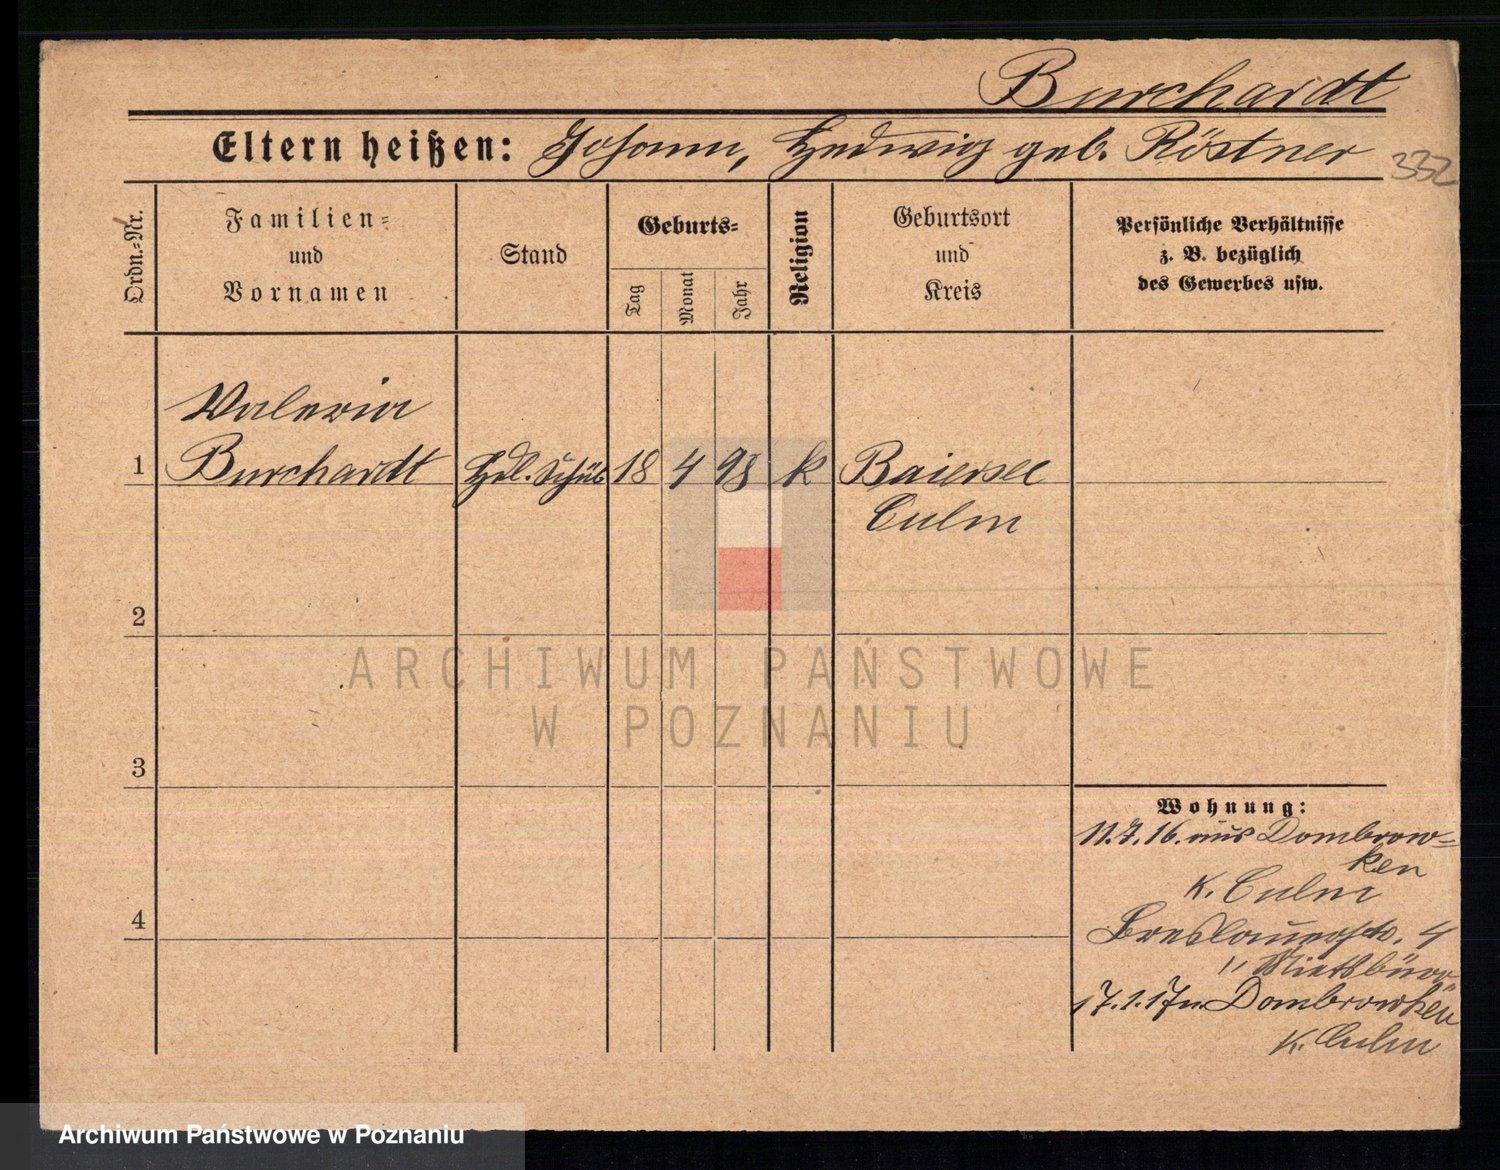 Burchardt
Eltern heißen: Johann, Hedwig geb. Röstner
332
Ordn.-Nr.
Familien-
und
Vornamen
Stand
Geburts-
Tag
Monat
Jahr
Religion
Geburtsort
und
Kreis
Persönliche Verhältnisse
z. B. bezüglich
des Gewerbes usw.
Valeria
1 Burchardt Hdl. Schül 18 4 98 k Baiersee
Culm
2
3
4
Wohnung:
11.7.16. aus Dombrow=
ken
K. Culm
Breslauerstr. 4
" Mietsbüro
17.1.17 n. Dombrowken
K. Culm
ARCHIWUM PAŃSTWOWE
W POZNANIU
Archiwum Państwowe w Poznaniu